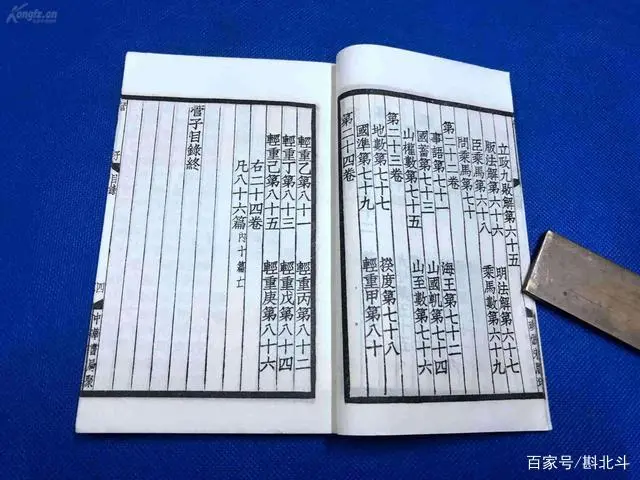 立政九敗解第六十五
版法解第六十六 明法解第六十七
臣乘馬第六十八 乘馬數第六十九
問乘馬第七十
第二十二卷
事語第七十一 海王第七十二
國蓄第七十三 山國軌第七十四
山權數第七十五 山至數第七十六
第二十三卷
地數第七十七 揆度第七十八
國準第七十九 輕重甲第八十
第二十四卷
輕重乙第八十一 輕重丙第八十二
輕重丁第八十三 輕重戊第八十四
輕重己第八十五 輕重庚第八十六
右二十四卷
凡八十六篇 內十篇亡
管子目錄終
管子 目錄 四 中華書局聚
Kongfz.cn
百家号/斟北斗